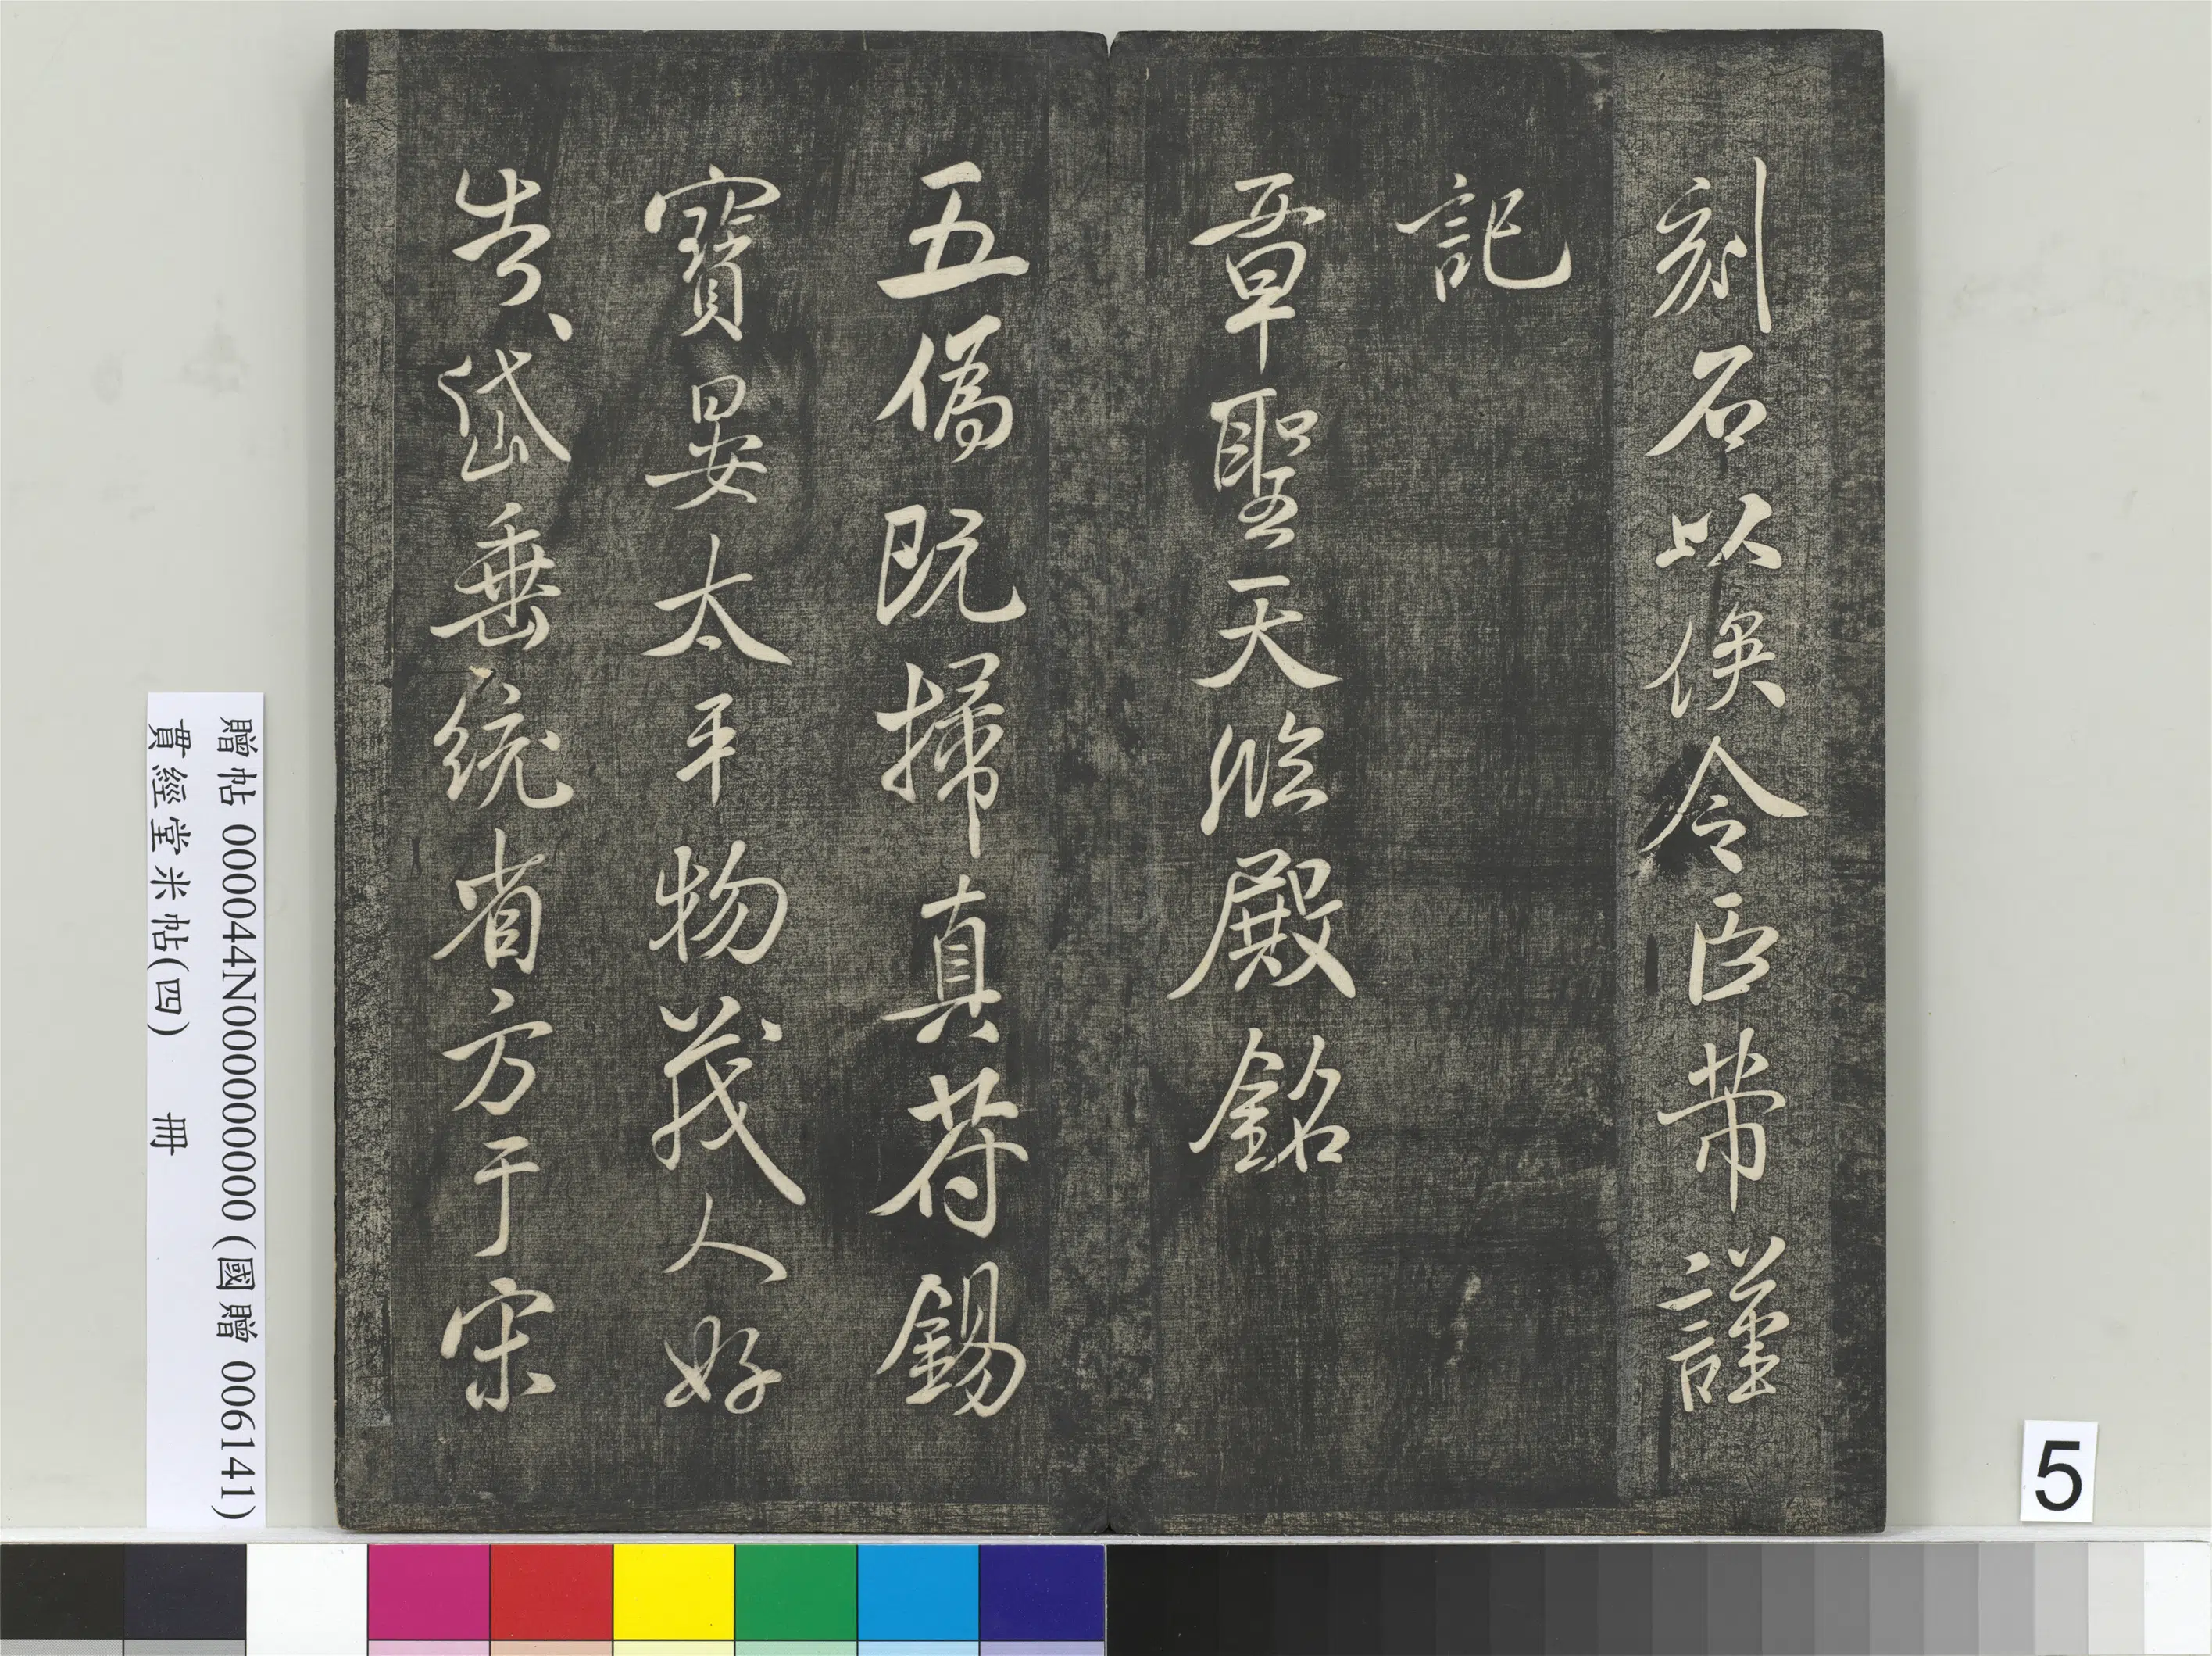 刻石以俟令臣芾謹
記
章聖天臨殿銘
五僞既掃真苻錫
寶晏太平物茂人好
告岱垂統省方于宋
贈帖 000044N000000000 (國贈 006141)
貫經堂米帖(四) 冊
5